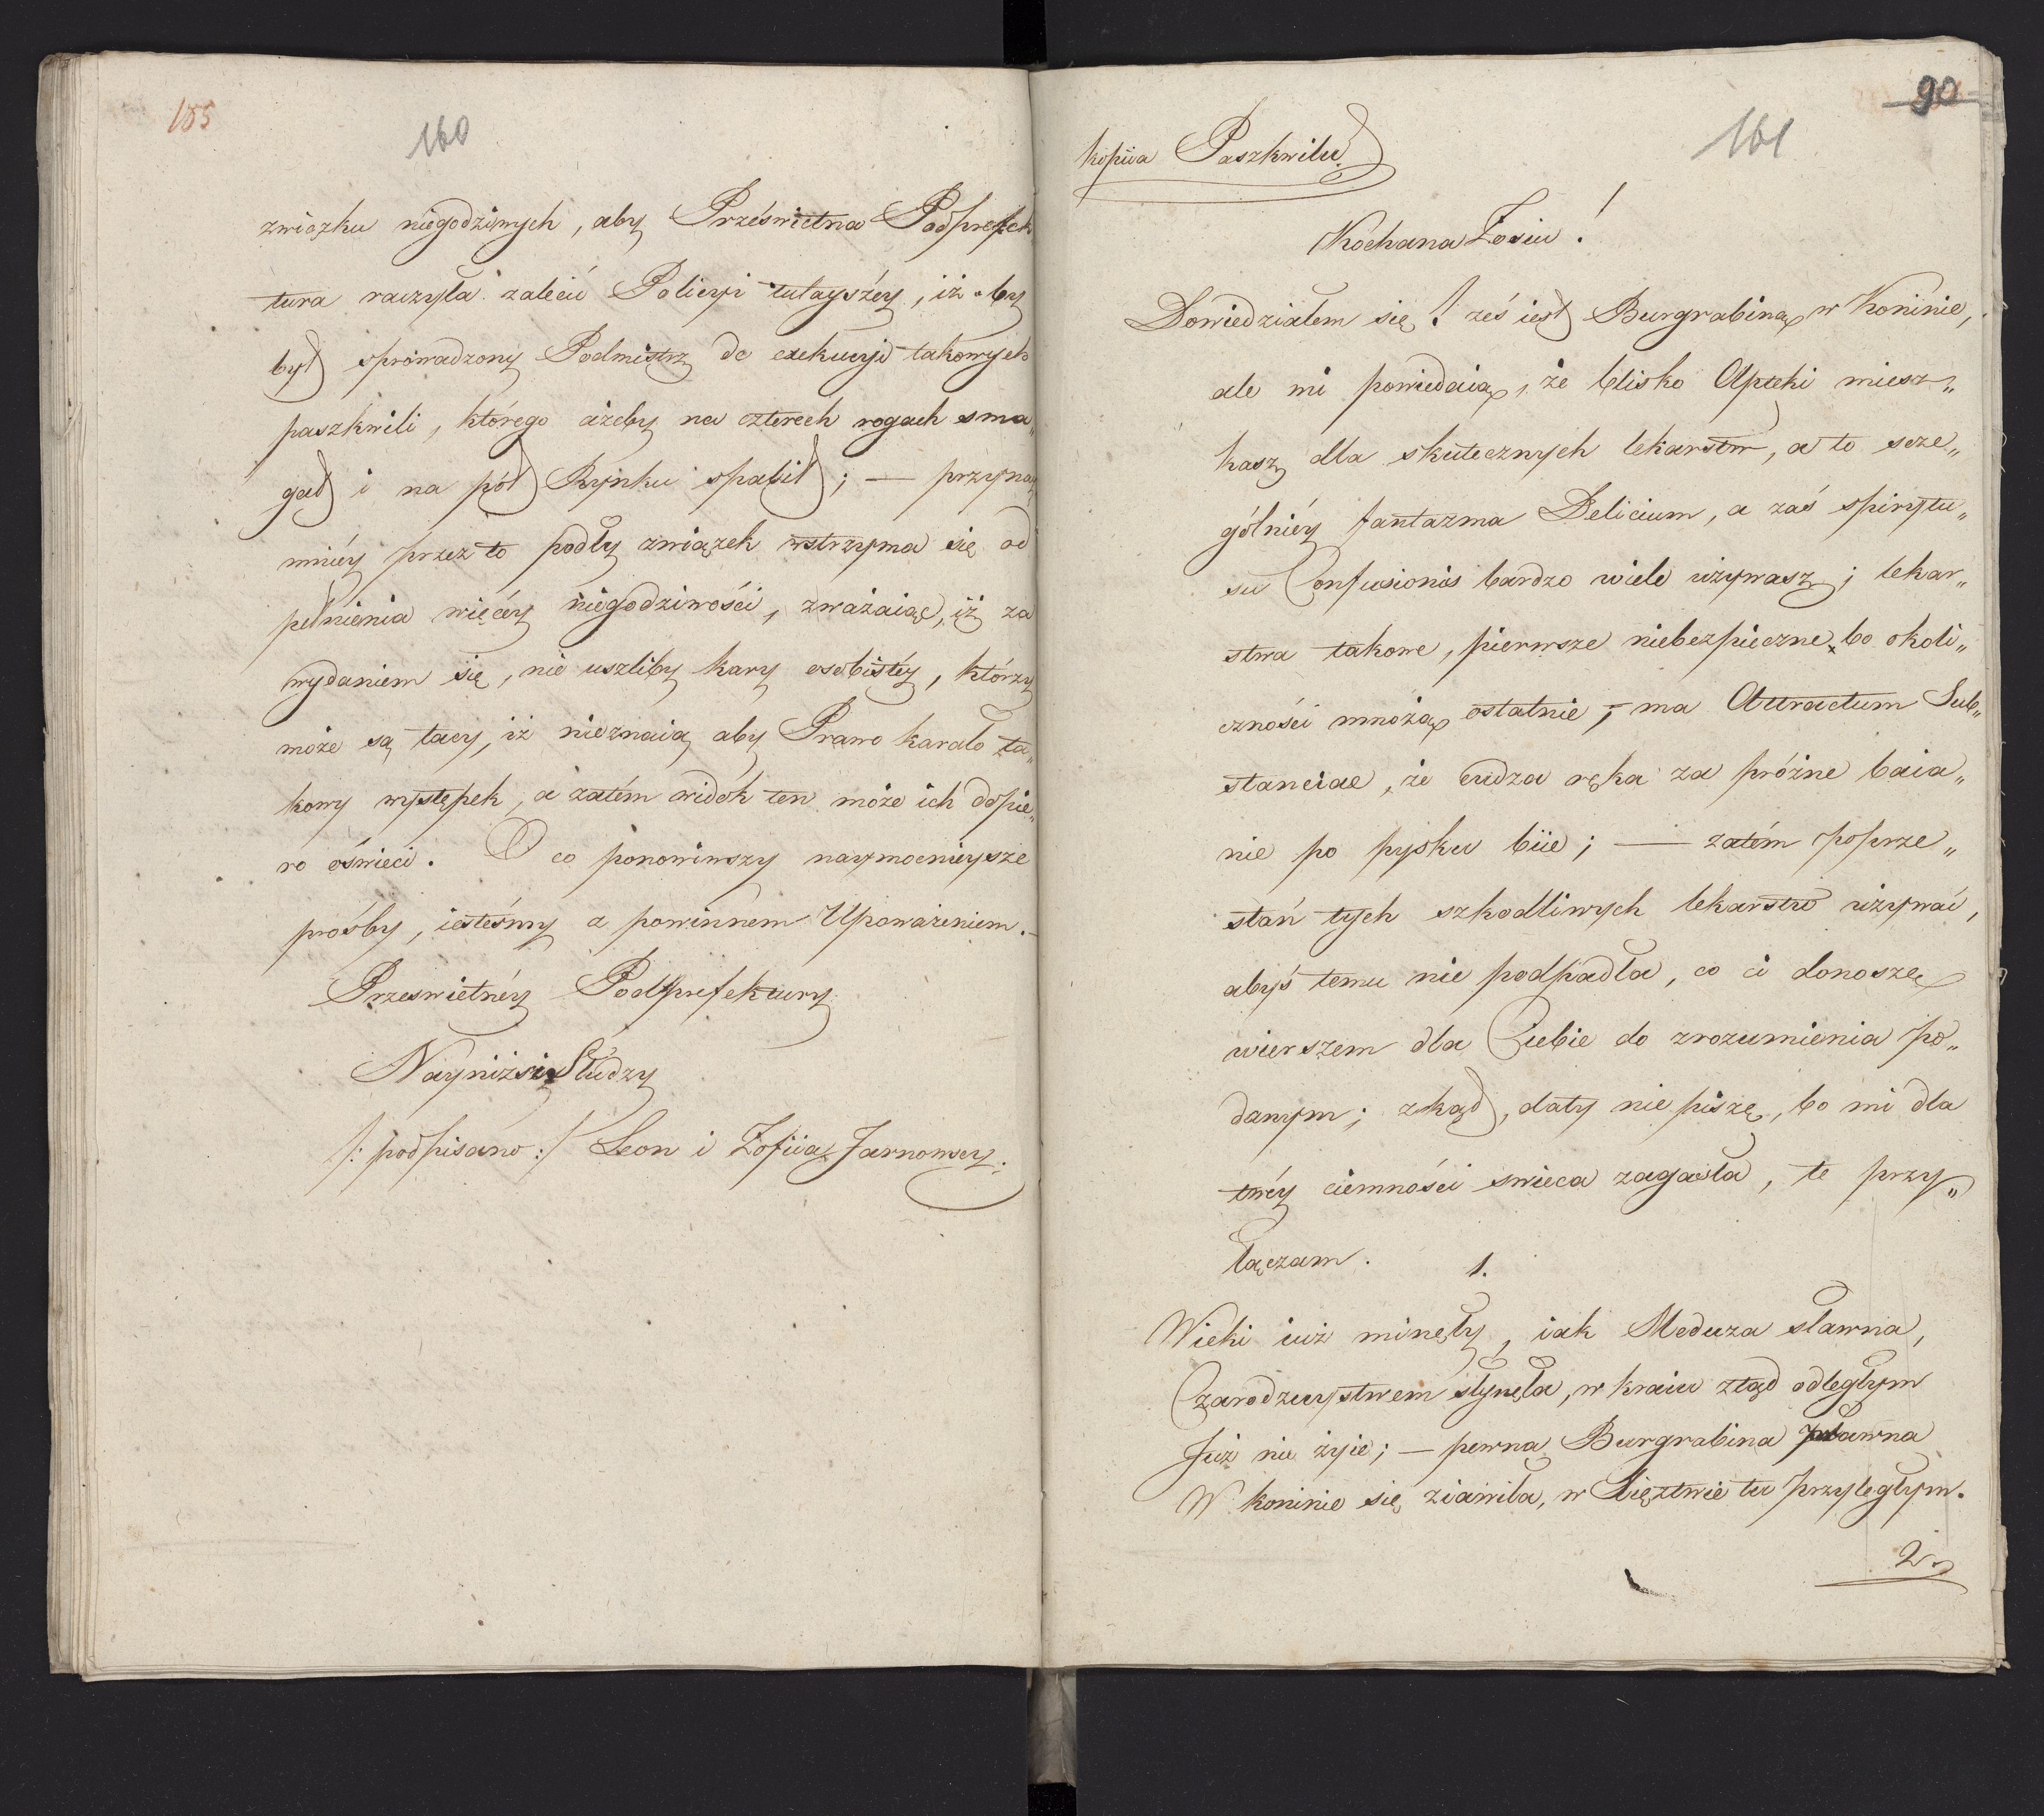 185
160
związku niegodziwych, aby Prześwietna Podprefek
tura raczyła zalecić Policyi tutayszéy, iż by
był sprowadzony Podmistrz do exekucyi takowych
paszkwili, którego ażeby na czterech rogach sma„
gał i na pół Rynku spalił; — przyna„
mniéy przez to podły związek wstrzyma się od
pełnienia więcéy niegodziwości, zważaiąc, iż za
wydaniem się, nie uszliby kary osobistéy, którzy
może są tacy, iż nieznaią aby Prawo karało ta„
kowy występek, a zatém widok ten może ich dopie„
ro oświeci. O co ponowiwszy naymocnieysze
prośby, iesteśmy z powinnem Upoważeniem.
Przeswietnéy Podprefektury
Nayniżsi Słudzy
/: podpisano :/ Leon i Zofiia Jarnowscy.
90
161
kopiia Paszkwilu
Kochana Zosiu!
Dowiedziałem się! żeś iest Burgrabiną w Koninie,
ale mi powiedaią, że blisko Apteki miesz„
kasz dla skutecznych lekarstw, a to scze„
gólniéy fantazma Delicium, a zaś spirytu„
su Confusionis bardzo wiele używasz; lekar„
stwa takowe, pierwsze niebezpieczne bo okoli„
czności mnożą ostatnie, ma Attractum Sub„
stanciae, że cudza ręka za próżne baia„
nie po pysku biie; — zatém poprze„
stań tych szkodliwych lekarstw używać,
abyś temu nie podpadła, co ci donoszę
wierszem dla Ciebie do zrozumienia po„
danym; zkąd, daty nie piszę, bo mi dla
twéy ciemności swieca zagasła, te przy„
łączam. 1.
Wieki iuż minęły, iak Meduza sławna,
Czarodzieystwem słynęła, w kraiu ztąd odległym
Już nie żyie; — pewna Burgrabina
W koninie się ziawiła, w Xięztwie tu przyległym.
2.